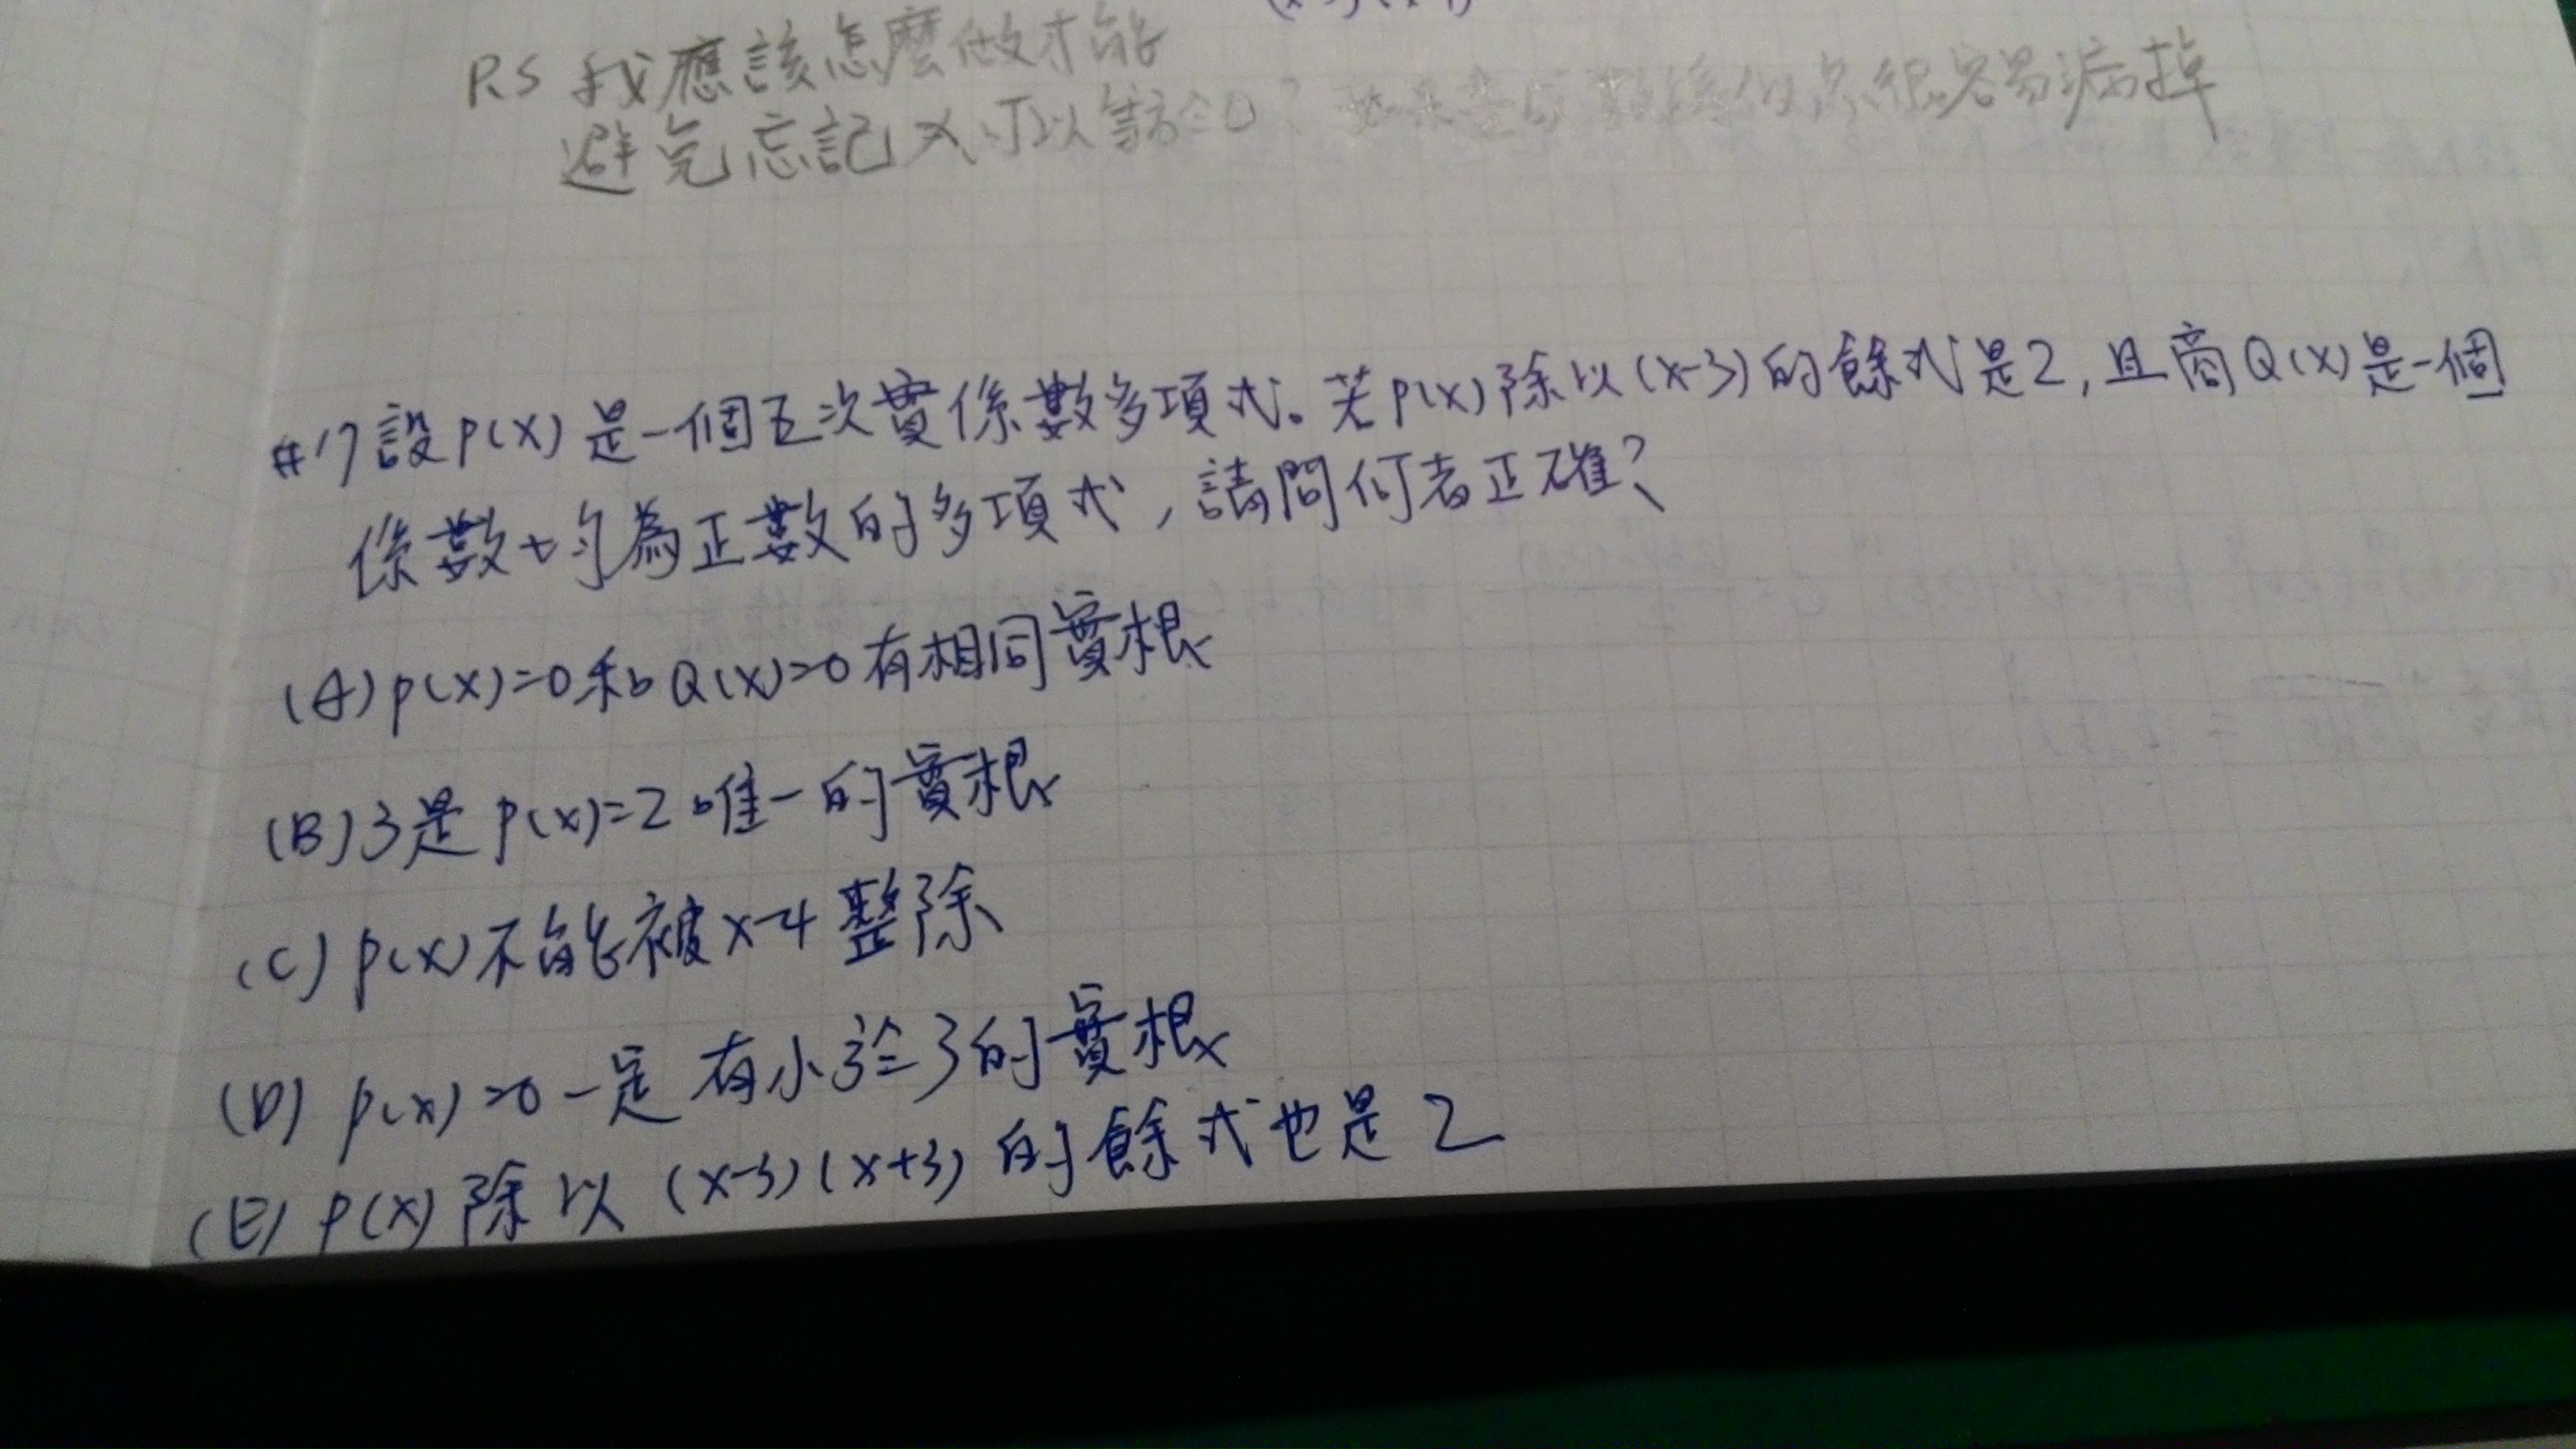 P.S 我應該怎麼做才能
避免忘記 x 可以等於0? 很容易漏掉
#17 設P(x)是一個五次實係數多項式。若P(x)除以(x-3)的餘式是2,且商Q(x)是一個
係數均為正數的多項式,請問何者正確?
(A) P(x)=0和Q(x)=0有相同實根
(B) 3是P(x)=2唯一的實根
(C) P(x)不能被x-4整除
(D) P(x)=0一定有小於3的實根
(E) P(x)除以(x-3)(x+3)的餘式也是2